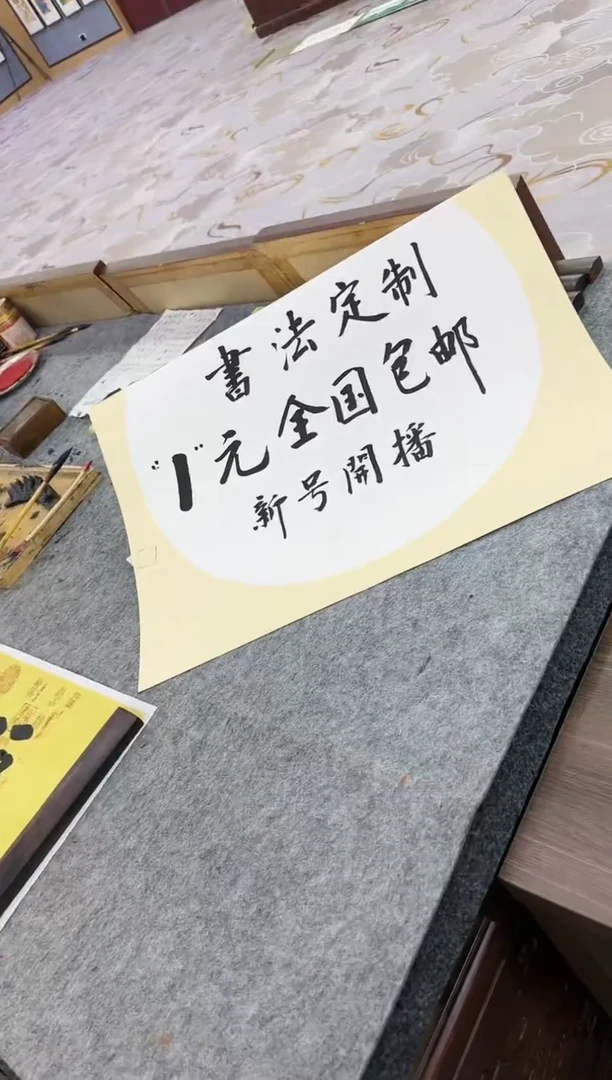 書法定制
"1"元全国包邮
新号開播